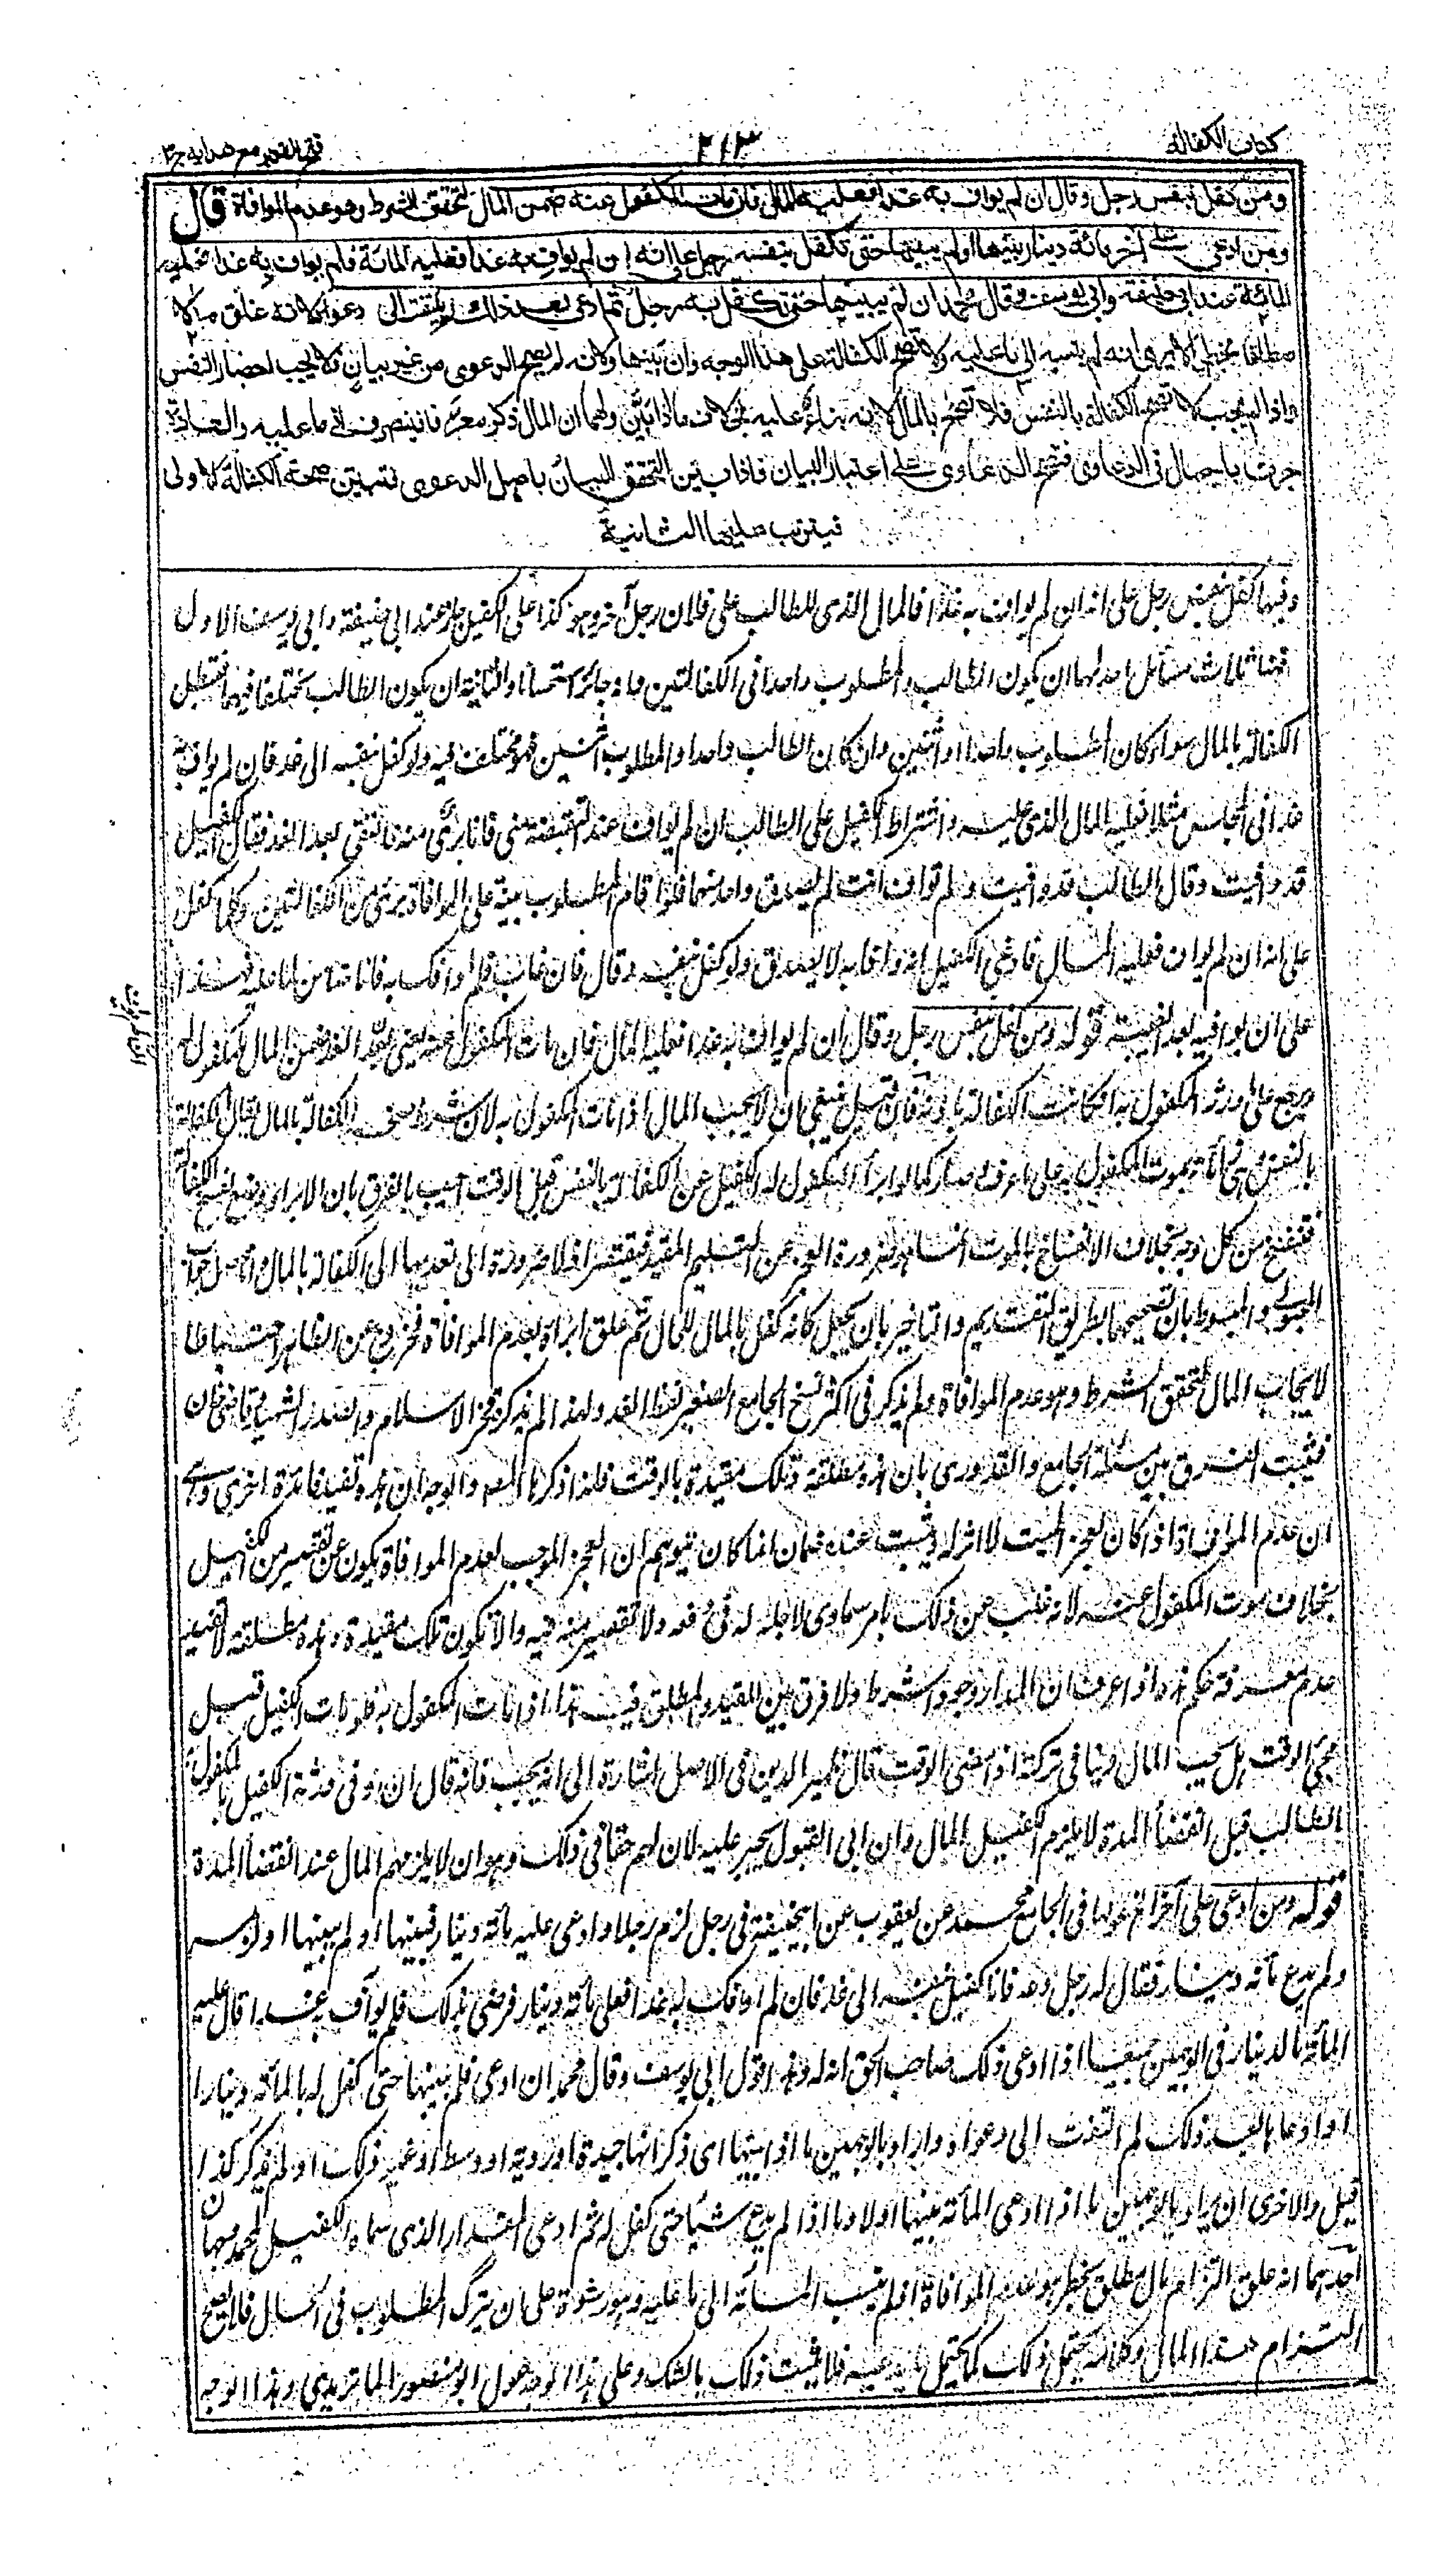 كتاب الكفالة
٢١٣
فتح القدير مع هدايه ج٣
ومن كفل بنفس رجل وقال ان لم يواف به غدا فعليه المال فان مات المكفول عنه ضمن المال لتحقق الشرط وهو عدم الموافاة قال
ومن ادعى على آخر مائة دينار بينها او لم يبينها حتى تكفل بنفسه رجل على انه ان لم يواف به غدا فعليه المائة فلم يواف به غدا فعليه
المائة عند ابي حنيفة وابي يوسف وقال محمد ان لم يبينها حتى تكفل به رجل ثم ادعى بعد ذلك لم يلتفت الى دعواه لانه علق مالا
مطلقا بخطر الا يرى انه لم ينسبه الى ما عليه ولا تصح الكفالة على هذا الوجه وان بينها ولانه لم يصح الدعوى من غير بيان فلا يجب احضار النفس
واذا لم يجب لا تصح الكفالة بالنفس فلا تصح بالمال لانه بناء عليه بخلاف ما اذا بين ولهما ان المال ذكر معرفا فينصرف الى ما عليه والعادة
جرت بالاجمال في الدعاوى فتصح الدعاوى على اعتبار البيان فاذا بين التحق البيان باصل الدعوى فتبين صحة الكفالة الاولى
فيترتب عليها الثانية
وفيها كفل بنفس رجل على انه ان لم يواف به غدا فالمال الذى للطالب على فلان رجل آخر وهو كذا على الكفيل جاز عند ابي حنيفة وابي يوسف الاول
فهنا ثلاث مسائل احدها ان يكون الطالب والمطلوب واحدا في الكفالتين وانه جائز استحسانا والثانية ان يكون الطالب مختلفا فيهما فتبطل
الكفالة بالمال سواء كان المطلوب واحدا او اثنين وان كان الطالب واحدا والمطلوب اثنين فهو مختلف فيه ولو كفل بنفسه الى غد فان لم يواف به
غدا في المجلس مثلا فعليه المال الذى عليه واشترط الكفيل على الطالب ان لم يواف عند القبضه منى فانا برئ منه فالتقى بعد الغد فقال الكفيل
قد وافيت وقال الطالب قد وافيت ولم تواف انت لم يصدق واحد منهما فلو اقام المطلوب بينة على الموافاة برئ من الكفالتين وكل كفل
على انه ان لم يواف فعليه المال فادعى الكفيل انه وافا به لا يصدق ولو كفل بنفسه وقال فان غاب فلم اوافك به فانا ضامن لما عليه فهذا
على ان يوافيه بعد الغيبة قوله ومن كفل بنفس رجل وقال ان لم يواف به غدا فعليه المال فان مات المكفول عنه يعنى بعد الغد ضمن المال للمكفول له
ويرجع على ورثة المكفول به ان كانت الكفالة بامره فان قيل ينبغى ان لا يجب المال اذا مات المكفول به لان شرط صحة الكفالة بالمال بقاء الكفالة
بالنفس هى زائلة بموت المكفول به على ما عرف وصار كما لو ابرأ المكفول له الكفيل عن الكفالة بالنفس قبل الوقت اجيب بالفرق بان الابراء وضع لفسخ الكفالة
فتنفسخ من كل وجه بخلاف الانفساخ بالموت انما هو ضرورة العجز عن التسليم المقيد فيقتصر اذ لا ضرورة الى تعديها الى الكفالة بالمال
المحبوبى والمبسوط بان تصحيحها بطريق التقديم والتاخير بان يجعل كانه كفل بالمال للحال ثم علق ابراءه بعدم الموافاة فخروج عن الظاهر احتياطا
لايجاب المال لتحقق الشرط وهو عدم الموافاة ولم يذكر في اكثر نسخ الجامع الصغير لفظ الغد ولهذا لم يذكره فخر الاسلام والصدر الشهيد وقاضى خان
فثبت الفرق بين مسئلة الجامع والقدورى بان هذه مطلقة وتلك مقيدة بالوقت فلذا ذكرنا المص والوجه ان هذه تفيد فائدة اخرى وهى
ان عدم الموافاة اذا كان لعجز الميت لا اثر له ويثبت عنده ضمان انما كان يتوهم ان العجز الموجب لعدم الموافاة يكون عن تقصير من الكفيل
بخلاف موت المكفول عنه لانه غلب عن ذلك بامر سماوى لا حيلة له في دفعه ولا تقصير منه فيه والا فكون تلك مقيدة وهذه مطلقة لا تفيد
عدم معرفة حكم هذه اذا عرف ان المدار وجود الشرط ولا فرق بين المقيد والمطلق فيه هذا اذا مات المكفول به فلو مات الكفيل قبل
مجئ الوقت هل يجب المال دينا في تركته اذا مضى الوقت قال ظهير الدين في الاصل اشارة الى انه يجب فانه قال ان وفى ورثة الكفيل بالمكفول به
الطالب قبل انقضاء المدة لا يلزم الكفيل المال وان ابى القبول يجبر عليه لان لهم حقا في ذلك وهو ان لا يلزمهم المال عند انقضاء المدة
قوله ومن ادعى على آخر الخ هو لها في الجامع محمد عن يعقوب عن ابى حنيفة في رجل لزم رجلا وادعى عليه مائة دينار فبينها او لم يبينها او لزمه
ولم يدع مائة دينار فقال له رجل دعه فانا كفيل بنفسه الى غد فان لم اوافك به غدا فعلى مائة دينار فرضى بذلك فلم يواف به غدا قال عليه
المائة الدينار في الوجهين جميعا اذا ادعى ذلك صاحب الحق انه له وهذا قول ابى يوسف وقال محمد ان ادعى فلم يبينها حتى كفل له بالمائة دينار
او ادعاها بعد ذلك لم التفت الى دعواه واراد بالوجهين ما اذا بينها اى ذكر انها جيدة او ردية او وسط او غير ذلك او لم يذكر كذا
قيل والاحرى ان يراد بالوجهين ما اذا ادعى المائة بينها اولا وما اذا لم يدع شيئا حتى كفل له ثم ادعى المقدار الذى سماه الكفيل لمحمد وجهان
احدهما انه علق التزام مال مطلق بخطر هو عدم الموافاة اذ لم ينسب المائة الى ما عليه وهو رشوة على ان يترك المطلوب في الحال فلا يصح
التزام هذا المال وكانه يحتمل ذلك كما يحتمل ما يدعيه فلا يثبت ذلك بالشك وعلى هذا الوجه عول ابو منصور الماتريدى وهذا الوجه